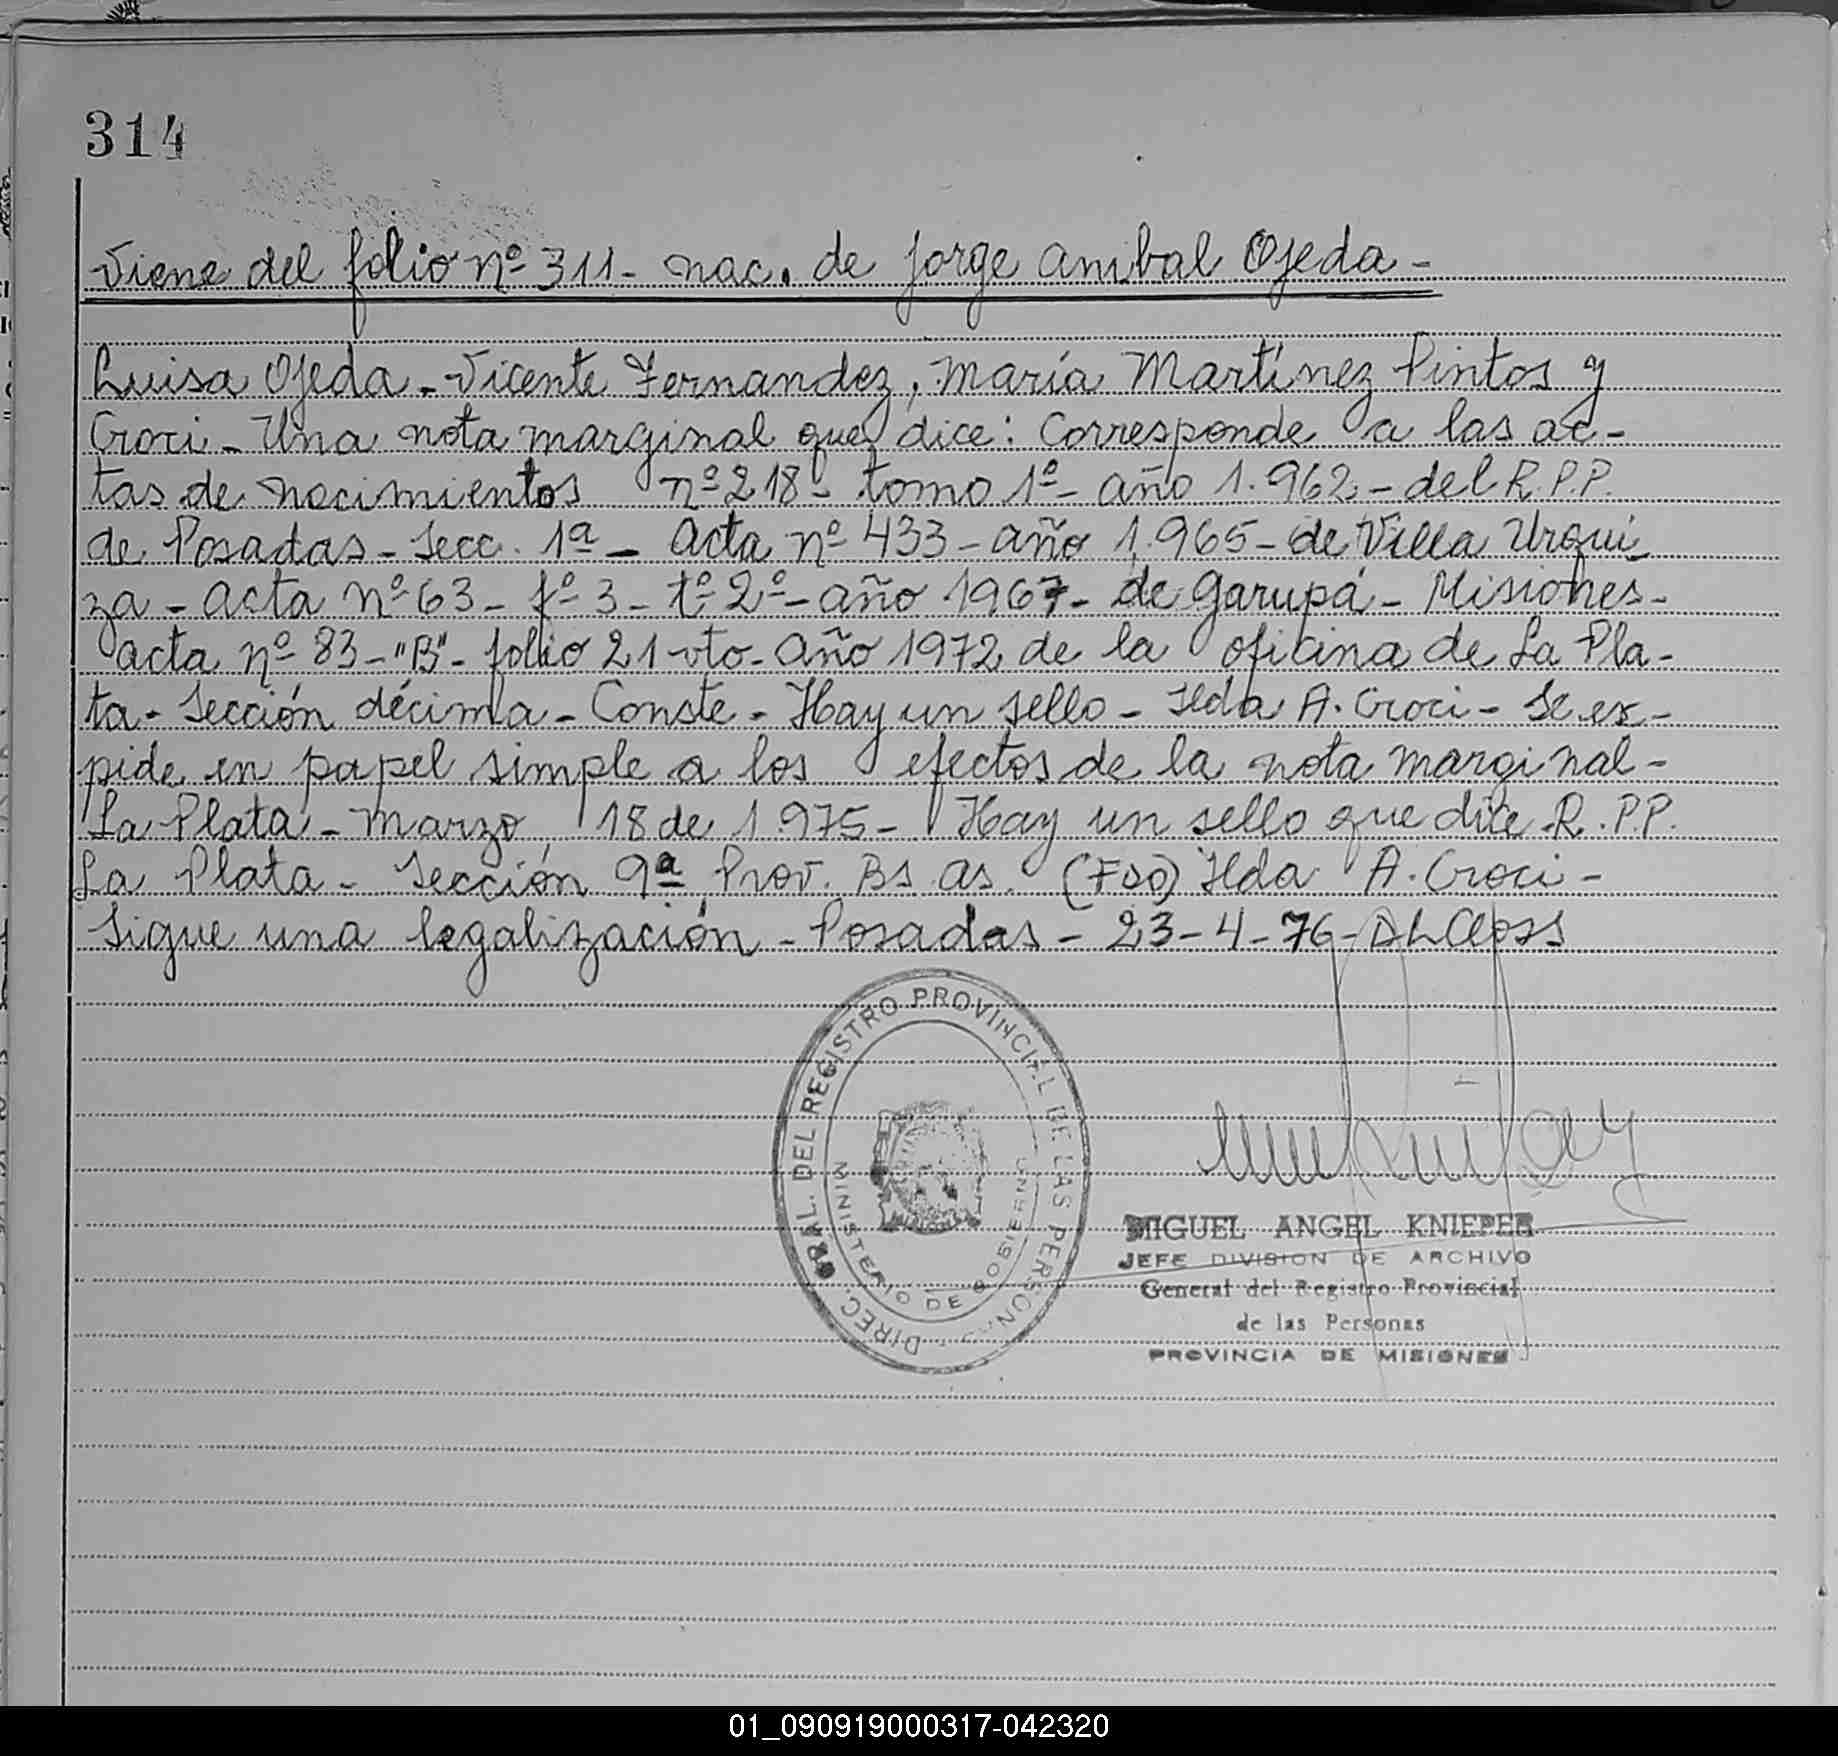 314
Viene del folio nº 311 - nac. de Jorge Anibal Ojeda -
Luisa Ojeda - Vicente Fernandez, María Martínez Pintos y
Croci - Una nota marginal que dice: Corresponde a las ac-
tas de nacimientos nº 218 - tomo 1º - año 1.962 - del R.P.P.
de Posadas - Secc. 1ª - Acta nº 433 - año 1.965 - de Villa Urqui
za - acta nº 63 - fº 3 - tº 2º - año 1967 - de Garupá - Misiones -
acta nº 83 - "B" - folio 21 vto - año 1972 de la oficina de La Pla-
ta - Sección décima - Conste - Hay un sello - Ilda A. Croci - Se ex-
pide en papel simple a los efectos de la nota marginal -
La Plata - marzo 18 de 1.975 - Hay un sello que dice R.P.P.
La Plata - Sección 9ª Prov. Bs. as. (Fdo) Ilda A. Croci -
Sigue una legalización - Posadas - 23-4-76 -
DIREC. GRAL. DEL REGISTRO PROVINCIAL DE LAS PERSONAS
MINISTERIO DE GOBIERNO
MISIONES
MIGUEL ANGEL KNIEPER
JEFE DIVISION DE ARCHIVO
General del Registro Provincial
de las Personas
PROVINCIA DE MISIONES
01_090919000317-042320